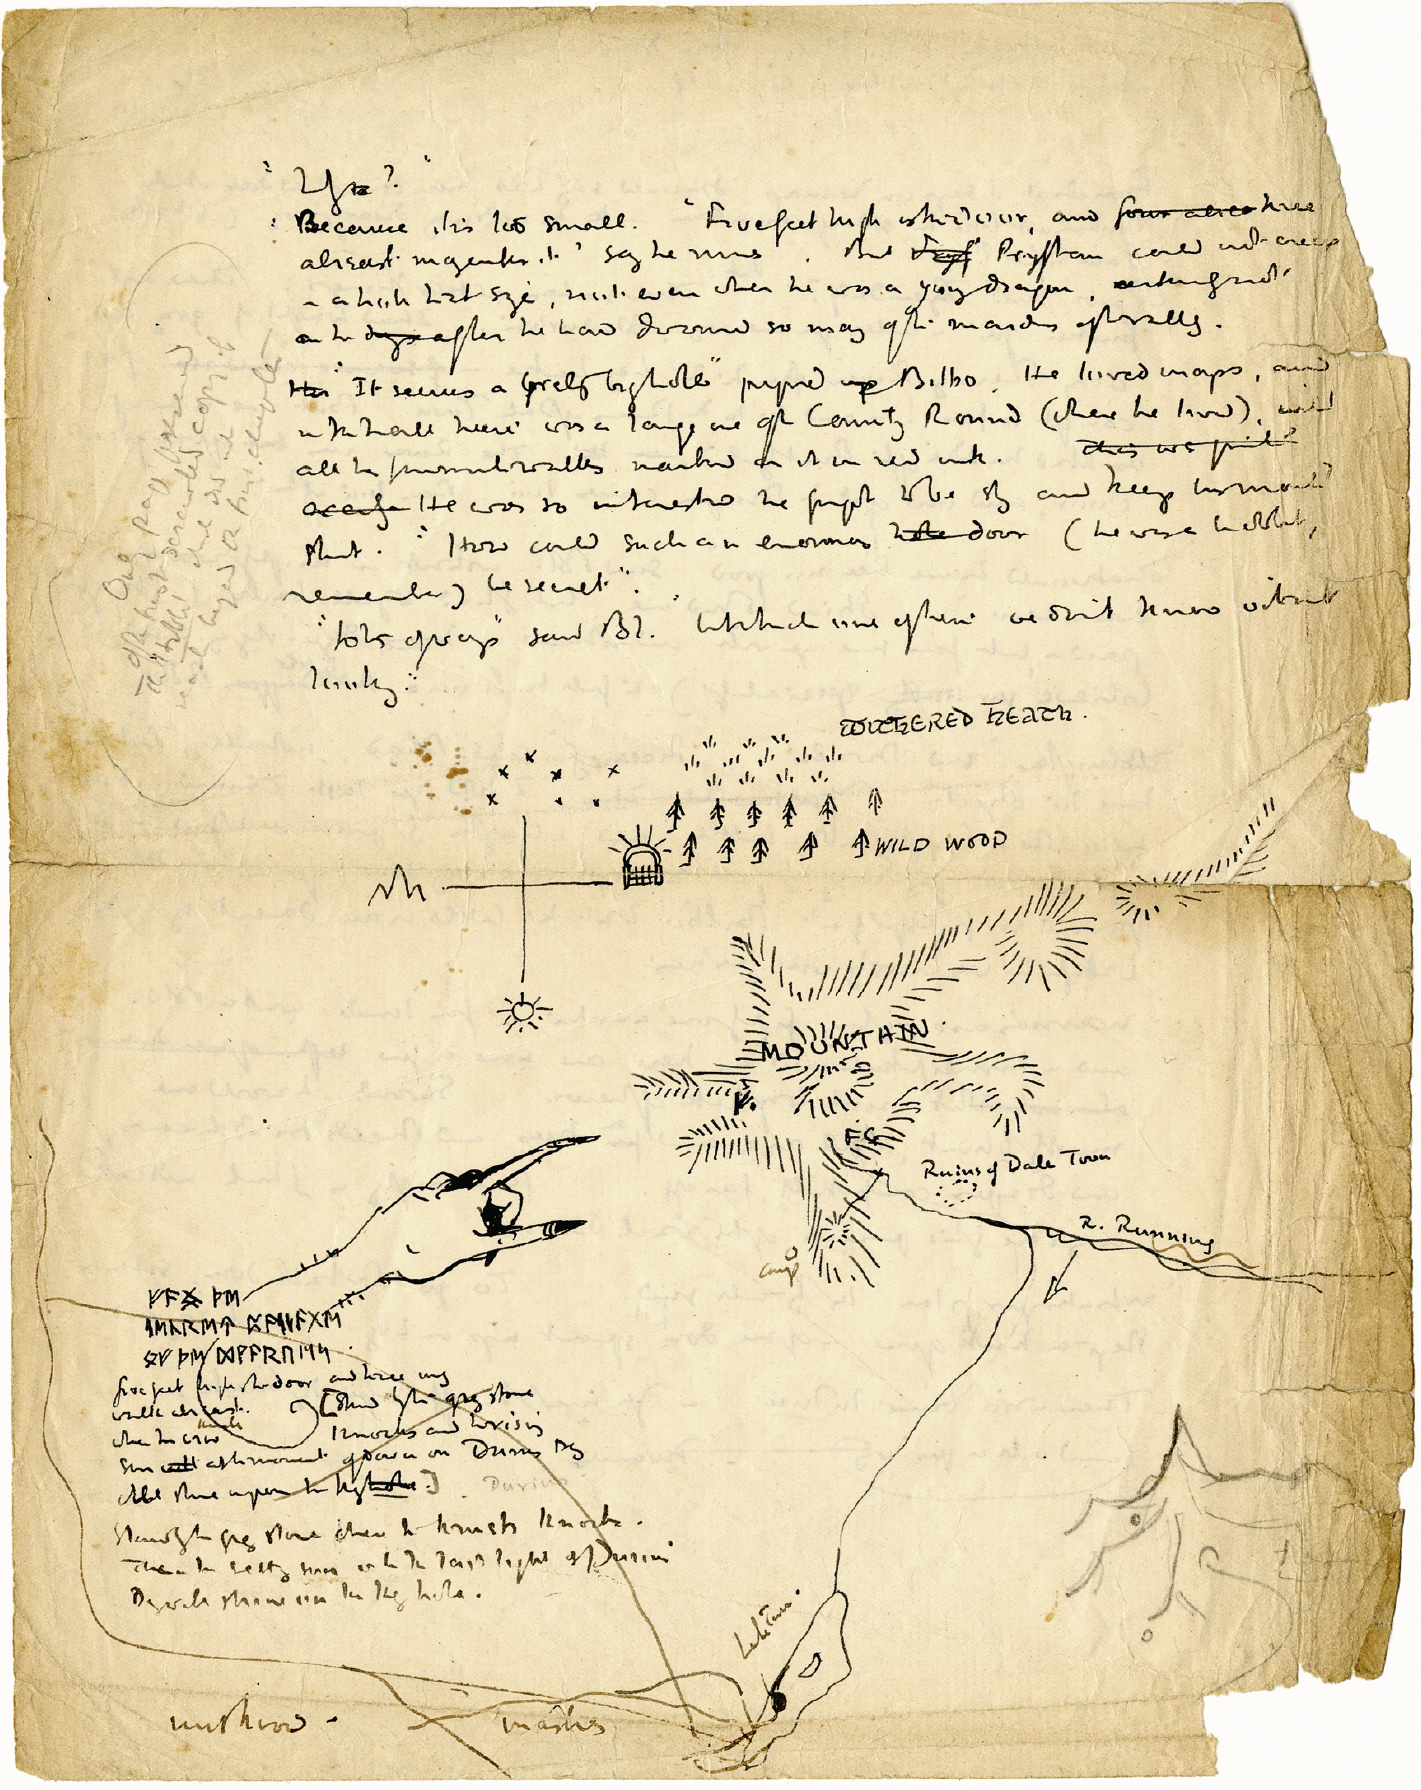 "Why?"
"Because it is too small. "Five feet high is the door, and four abreast three
abreast may enter it" say the runes. But Pryftan could not creep
in a hole that size, not even when he was a young dragon, certainly not
after he had devoured so many of the maidens of the valley.
"It seems a great big hole" piped up Bilbo. He loved maps, and
in the hall there was a large one of the County Round (where he lived), with
all his favourite walks marked on it in red ink.
He was so interested he forgot to be shy and keep his mouth
shut. "How could such an enormous hole door (he was a hobbit,
remember) be secret".
"Lots of ways" said Bl. but which one of them we don't know without
looking."
Only page preserved
of the first scrawled copy of
the Hobbit which did not
reach beyond the first chapter
WITHERED HEATH.
WILD WOOD
MOUNTAIN.
FG
Ruins of Dale Town
R. Running
camp
ᚠᚪᛝ ᚦᛖ
ᛋᛖᚳᚱᛖᛏ ᛈᚪᛋᛋᚪᚷᛖ
ᚩᚠ ᚦᛖ ᛞᚹᚪᚱᚢᛖᛋ.
five feet high is the door and three may
walk abreast.
[Stand by the grey stone
when the crow
knocks and the rising
sun at the moment of dawn on Durins Day
will shine upon the keyhole.]
Durin
Stand by the grey stone when the thrush knocks.
Then the setting sun with the last light of Durins
Day will shine on the key hole.
Lake Town.
mirkwood.
marshes